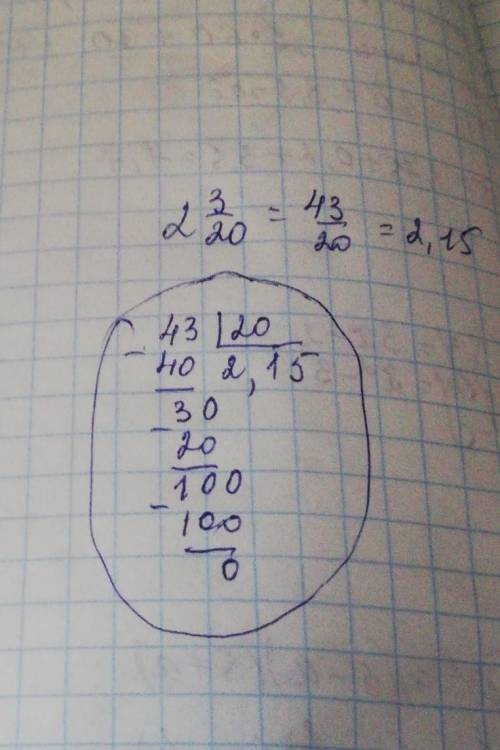 2 3/20 = 43/20 = 2,15
- 43 | 20
40 2,15
- 30
20
- 100
100
0